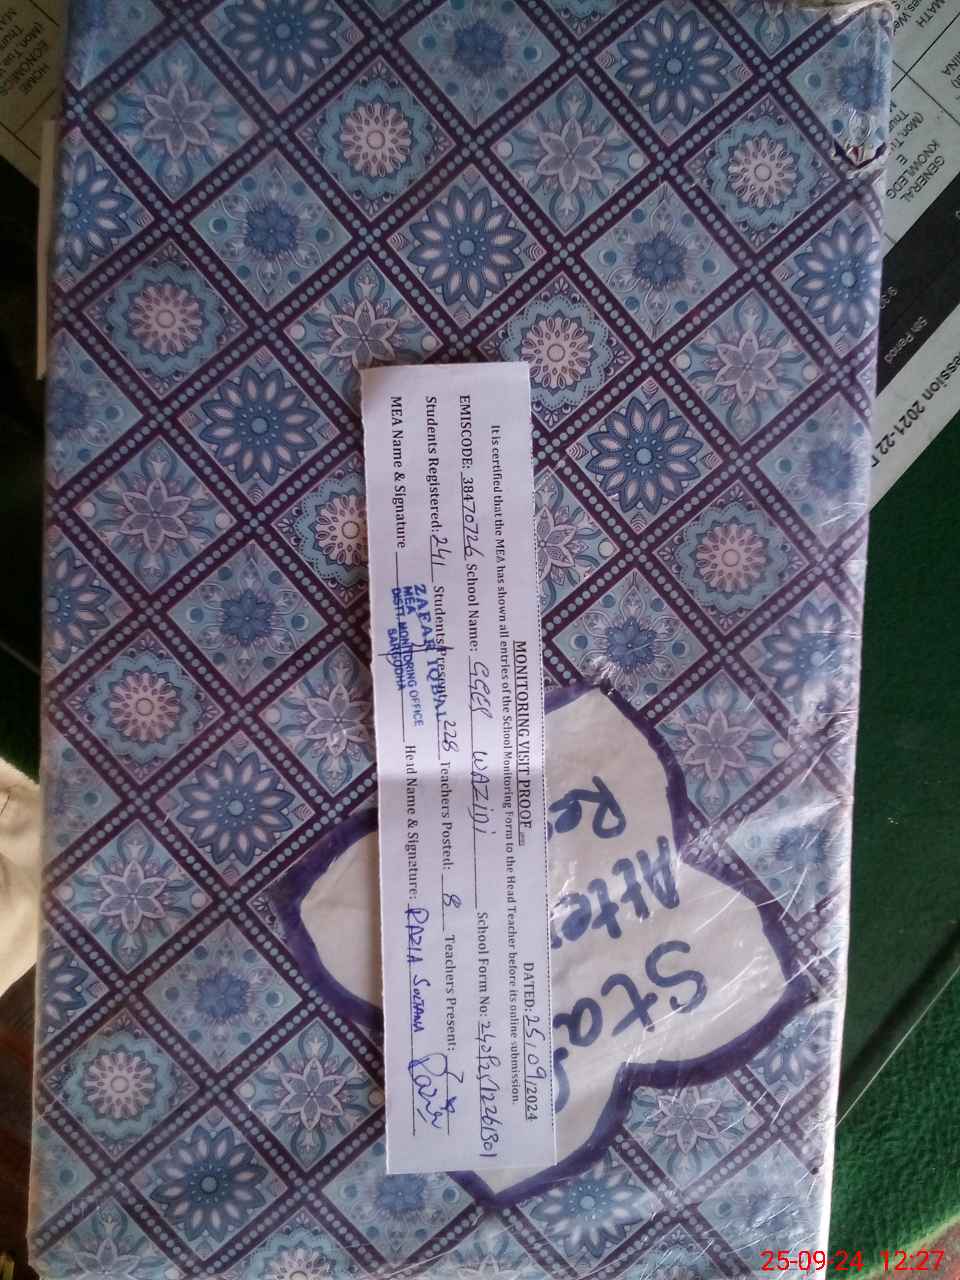 MONITORING VISIT PROOF
DATED: 25/09/2024
It is certified that the MEA has shown all entries of the School Monitoring Form to the Head Teacher before its online submission.
EMISCODE: 38470726 School Name: GGES WAZIDI School Form No: 240925/12261301
Students Registered: 241 Students Present: 228 Teachers Posted: 8 Teachers Present: 7
MEA Name & Signature Head Name & Signature: RAZIA SULTANA
ZAFAR IQBAL
MEA
DISTT. MONITORING OFFICE
SARGODHA
Sta
Atte
Re
MATH
GENERAL
KNOWLEDG
E
HOME
ECONOMICS
5th Period
ession 2021-22
25-09-24 12:27